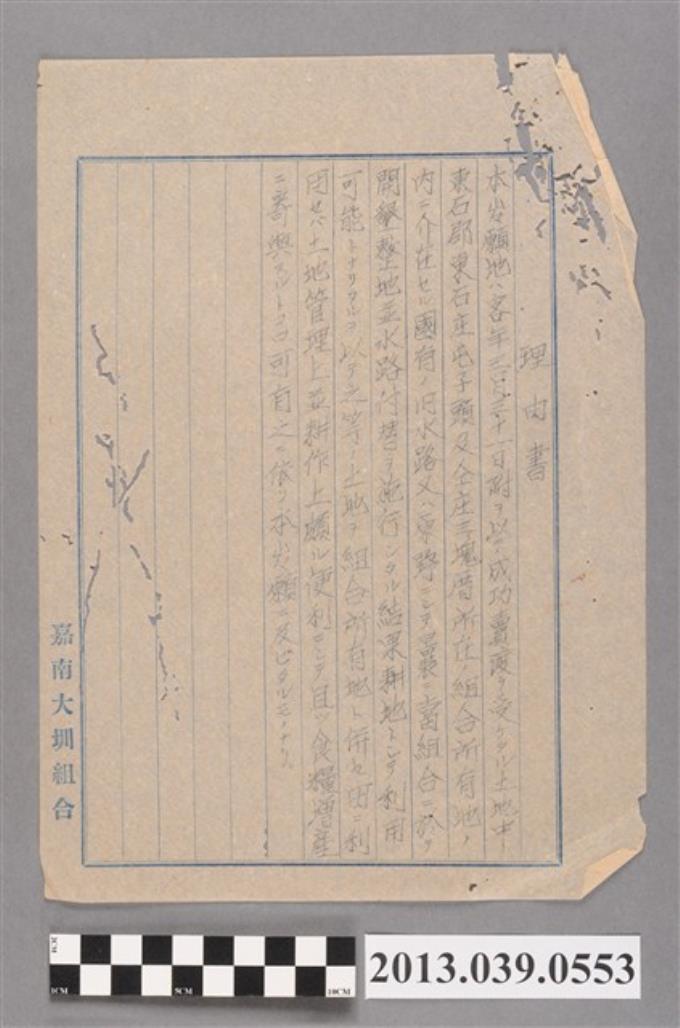 理由書
本出願地ハ客年三月三十一日附ヲ以テ成功賣渡ヲ受ケタル土地中
東石郡東石庄屯子頭及仝庄三塊厝所在ノ組合所有地ノ
内ニ介在セル國有ノ旧水路又ハ原野ニシテ曩ニ當組合ニ於テ
開墾整地並水路付替ヲ施行シタル結果耕地トシテ利用
可能トナリタルヲ以テ之等ノ土地ヲ組合所有地ト併セ田ニ利
用セバ土地管理上並耕作上頗ル便利ニシテ且ツ食糧增産
ニ寄與スルトコロ可有之ニ依リ本出願ニ及ビタルモノナリ
嘉南大圳組合
1CM
5CM
10CM
2013.039.0553